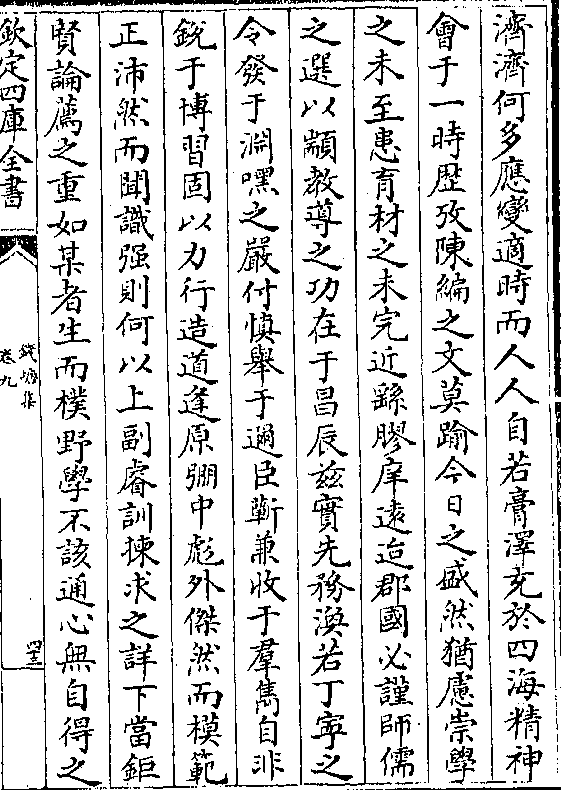 濟濟何多應變適時而人人自若膏澤充於四海精神
會于一時歴攷陳編之文莫踰今日之盛然猶慮崇學
之未至患育材之未完近繇膠庠遠迨郡國必謹師儒
之選以顓教導之功在于昌辰兹實先務渙若丁寧之
令發于淵嘿之嚴付慎舉于邇臣蘄兼收于羣雋自非
鋭于博習固以力行造道逢原弸中彪外傑然而模範
正沛然而聞識强則何以上副睿訓揀求之詳下當鉅
賢論薦之重如某者生而樸野學不該通心無自得之
欽定四庫全書
錢塘集
卷九
四三